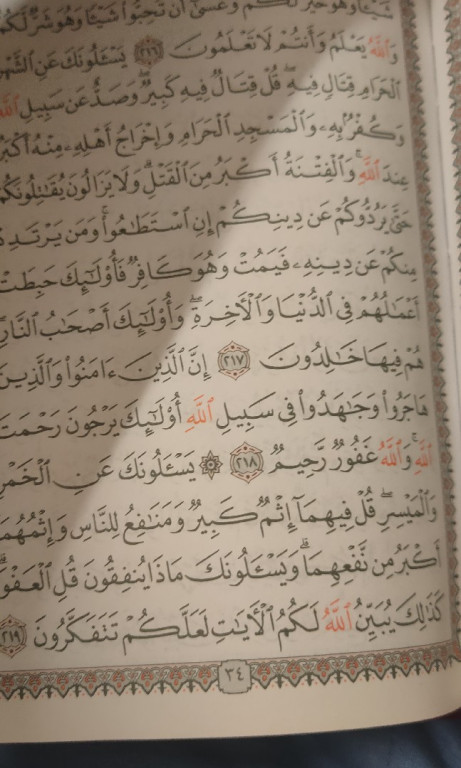 شَيْـًٔا وَهُوَ خَيْرٌ لَّكُمْ وَعَسَىٰٓ أَن تُحِبُّوا۟ شَيْـًٔا وَهُوَ شَرٌّ لَّكُمْ
وَٱللَّهُ يَعْلَمُ وَأَنتُمْ لَا تَعْلَمُونَ ٢١٦ يَسْـَٔلُونَكَ عَنِ ٱلشَّهْرِ
ٱلْحَرَامِ قِتَالٍ فِيهِ ۖ قُلْ قِتَالٌ فِيهِ كَبِيرٌ ۖ وَصَدٌّ عَن سَبِيلِ ٱللَّهِ
وَكُفْرٌۢ بِهِۦ وَٱلْمَسْجِدِ ٱلْحَرَامِ وَإِخْرَاجُ أَهْلِهِۦ مِنْهُ أَكْبَرُ
عِندَ ٱللَّهِ ۚ وَٱلْفِتْنَةُ أَكْبَرُ مِنَ ٱلْقَتْلِ ۗ وَلَا يَزَالُونَ يُقَـٰتِلُونَكُمْ
حَتَّىٰ يَرُدُّوكُمْ عَن دِينِكُمْ إِنِ ٱسْتَطَـٰعُوا۟ ۚ وَمَن يَرْتَدِدْ
مِنكُمْ عَن دِينِهِۦ فَيَمُتْ وَهُوَ كَافِرٌ فَأُو۟لَـٰٓئِكَ حَبِطَتْ
أَعْمَـٰلُهُمْ فِى ٱلدُّنْيَا وَٱلْـَٔاخِرَةِ ۖ وَأُو۟لَـٰٓئِكَ أَصْحَـٰبُ ٱلنَّارِ
هُمْ فِيهَا خَـٰلِدُونَ ٢١٧ إِنَّ ٱلَّذِينَ ءَامَنُوا۟ وَٱلَّذِينَ
هَاجَرُوا۟ وَجَـٰهَدُوا۟ فِى سَبِيلِ ٱللَّهِ أُو۟لَـٰٓئِكَ يَرْجُونَ رَحْمَتَ
ٱللَّهِ ۚ وَٱللَّهُ غَفُورٌ رَّحِيمٌ ٢١٨ ۞ يَسْـَٔلُونَكَ عَنِ ٱلْخَمْرِ
وَٱلْمَيْسِرِ ۖ قُلْ فِيهِمَآ إِثْمٌ كَبِيرٌ وَمَنَـٰفِعُ لِلنَّاسِ وَإِثْمُهُمَآ
أَكْبَرُ مِن نَّفْعِهِمَا ۗ وَيَسْـَٔلُونَكَ مَاذَا يُنفِقُونَ قُلِ ٱلْعَفْوَ ۗ
كَذَٰلِكَ يُبَيِّنُ ٱللَّهُ لَكُمُ ٱلْـَٔايَـٰتِ لَعَلَّكُمْ تَتَفَكَّرُونَ ٢١٩
٣٤